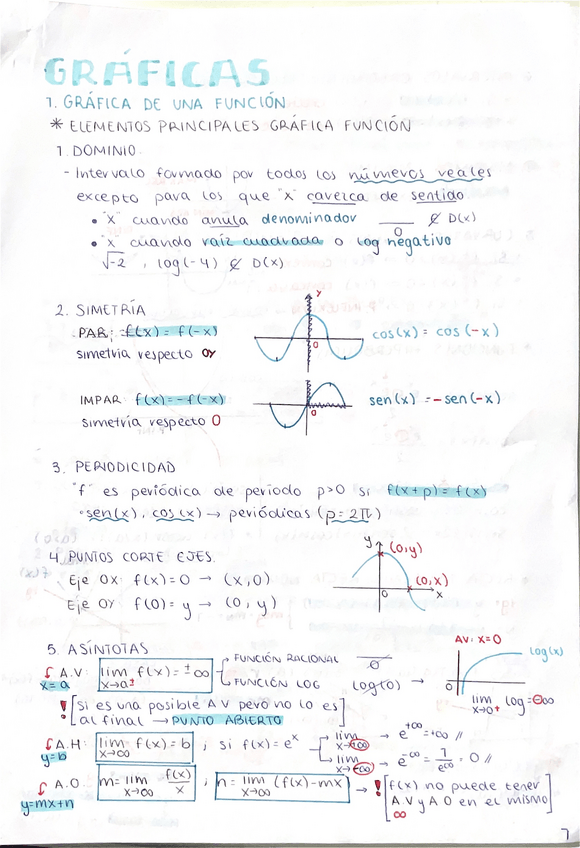 GRÁFICAS
1. GRÁFICA DE UNA FUNCIÓN
* ELEMENTOS PRINCIPALES GRÁFICA FUNCIÓN
1. DOMINIO.
- Intervalo formado por todos los números reales
excepto para los que "x" carezca de sentido
• "x" cuando anula denominador __/0 ∉ D(x)
• "x" cuando raíz cuadrada o log negativo
√-2 , log(-4) ∉ D(x)
2. SIMETRÍA
PAR: f(x) = f(-x)
simetría respecto OY
Y
0
cos(x) = cos(-x)
IMPAR f(x) = -f(-x)
simetría respecto O
0
sen(x) = -sen(-x)
3. PERIODICIDAD
"f" es periódica de período p>0 si f(x+p) = f(x)
• sen(x), cos(x) → periódicas (p=2π)
4. PUNTOS CORTE EJES.
Eje OX: f(x)=0 → (x,0)
Eje OY f(0)=y → (0,y)
y
(0,y)
(0,x)
0
x
5. ASÍNTOTAS
A.V: lim x→a± f(x) = ±∞
x=a
FUNCIÓN RACIONAL __/0
FUNCIÓN LOG log(0) →
AV: x=0
log(x)
0
lim x→0+ log = -∞
! [si es una posible AV pero no lo es
al final → PUNTO ABIERTO]
A.H: lim x→∞ f(x) = b ; si f(x) = eˣ
y=b
lim x→+∞ → e^+∞ = +∞ //
lim x→-∞ → e^-∞ = 1/e^∞ = 0 //
A.O: m = lim x→∞ f(x)/x ; n = lim x→∞ (f(x)-mx) →
y=mx+n
! [f(x) no puede tener
A.V y A O en el mismo
∞]
7